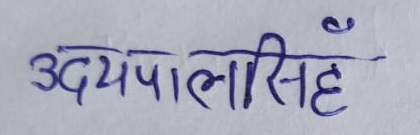 उदयपालसिहँ